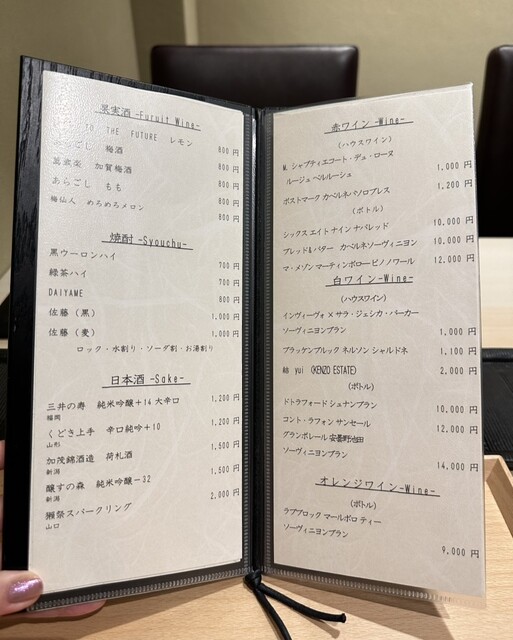 果実酒 -Furuit Wine-
TO THE FUTURE レモン 800 円
あらごし 梅酒 800 円
萬歳楽 加賀梅酒 800 円
あらごし もも 800 円
梅仙人 めろめろメロン 800 円
焼酎 -Syouchu-
黒ウーロンハイ 700 円
緑茶ハイ 700 円
DAIYAME 800 円
佐藤（黒） 1,000 円
佐藤（麦） 1,000 円
ロック・水割り・ソーダ割・お湯割り
日本酒 -Sake-
三井の寿 純米吟醸＋14 大辛口 1,200 円
福岡
くどき上手 辛口純吟＋10 1,200 円
山形
加茂錦酒造 荷札酒 1,500 円
新潟
醸すの森 純米吟醸－32 1,500 円
新潟
獺祭スパークリング 2,000 円
山口
赤ワイン -Wine-
（ハウスワイン）
M. シャプティエコート・デュ・ローヌ
ルージュ ベルルーシュ 1,000 円
ポストマーク カベルネパソロブレス 1,200 円
（ボトル）
シックス エイト ナイン ナパレッド 10,000 円
ブレッド&バター カベルネソーヴィニヨン 10,000 円
マ・メゾン マーティンボロー ピノノワール 12,000 円
白ワイン -Wine-
（ハウスワイン）
インヴィーヴォ × サラ・ジェシカ・パーカー
ソーヴィニヨンブラン 1,000 円
ブラッケンブルック ネルソン シャルドネ 1,100 円
結 yui (KENZO ESTATE) 2,000 円
（ボトル）
ドトラフォード シュナンブラン 10,000 円
コント・ラフォン サンセール 12,000 円
グランポレール 安曇野池田
ソーヴィニヨンブラン 14,000 円
オレンジワイン -Wine-
（ボトル）
ラブブロック マールボロ ティー
ソーヴィニヨンブラン 9,000 円